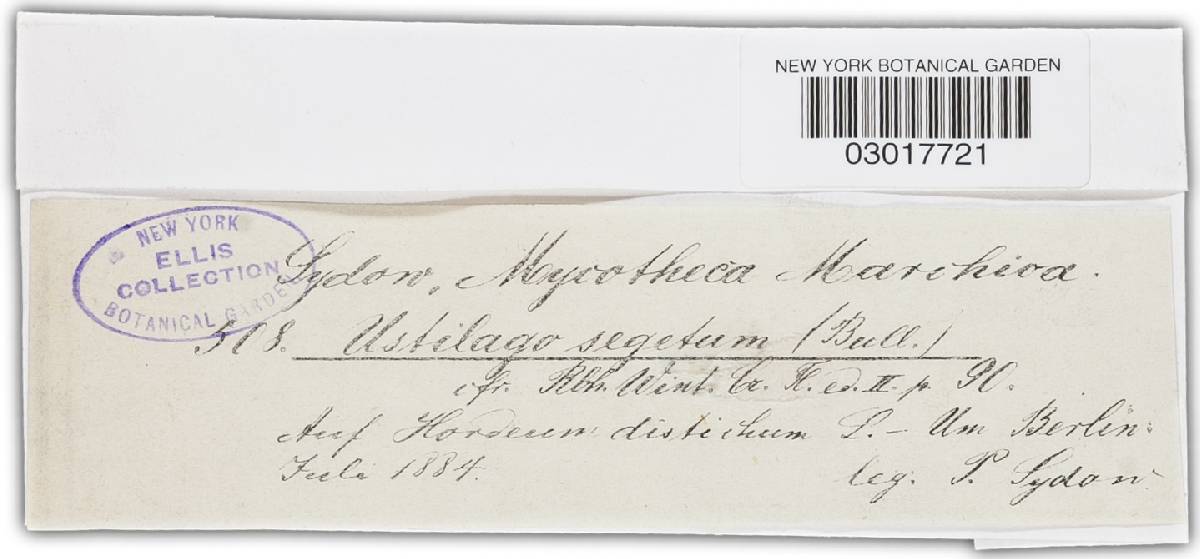 NEW YORK BOTANICAL GARDEN
03017721
NEW YORK
ELLIS
COLLECTION
BOTANICAL GARDEN
Sydow, Mycotheca Marchica.
508. Ustilago segetum (Bull.)
cfr. Rbh. Wint. Cr. Fl. ed. II. p. 90.
Auf Hordeum distichum L. – Um Berlin:
Juli 1884. leg. P. Sydow